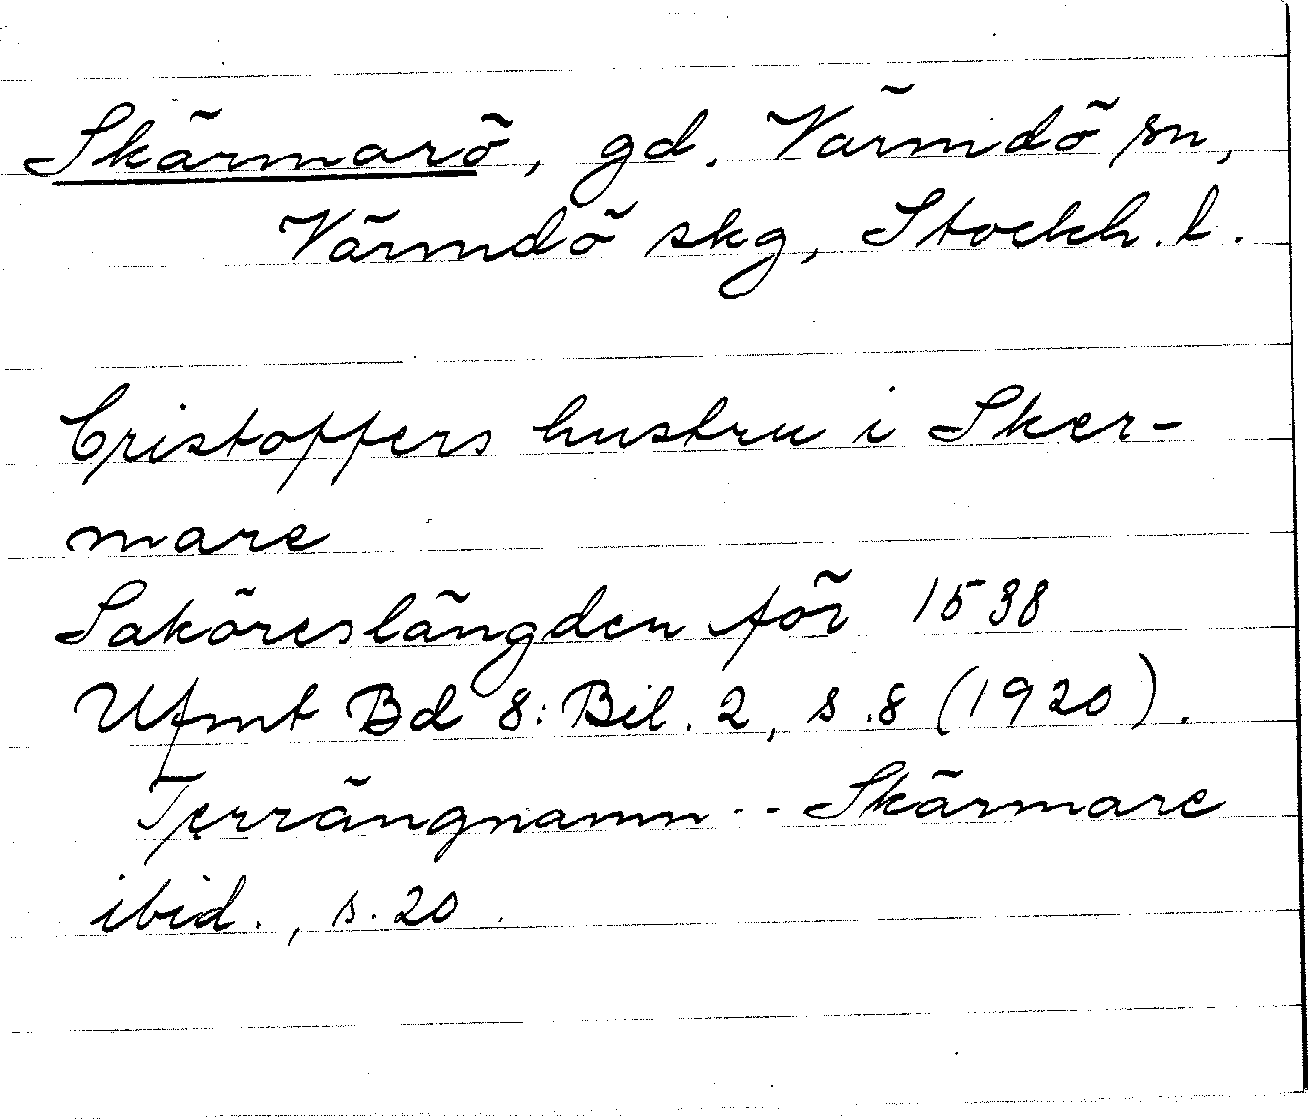 Skärmarö, gd. Värmdö sn,
Värmdö skg, Stockh. l.
Cristoffers hustru i Sker-
mare
Saköreslängden för 1538
Ufmt Bd 8: Bil. 2, s. 8 (1920).
Terrängnamn -- Skärmare
ibid., s. 20.